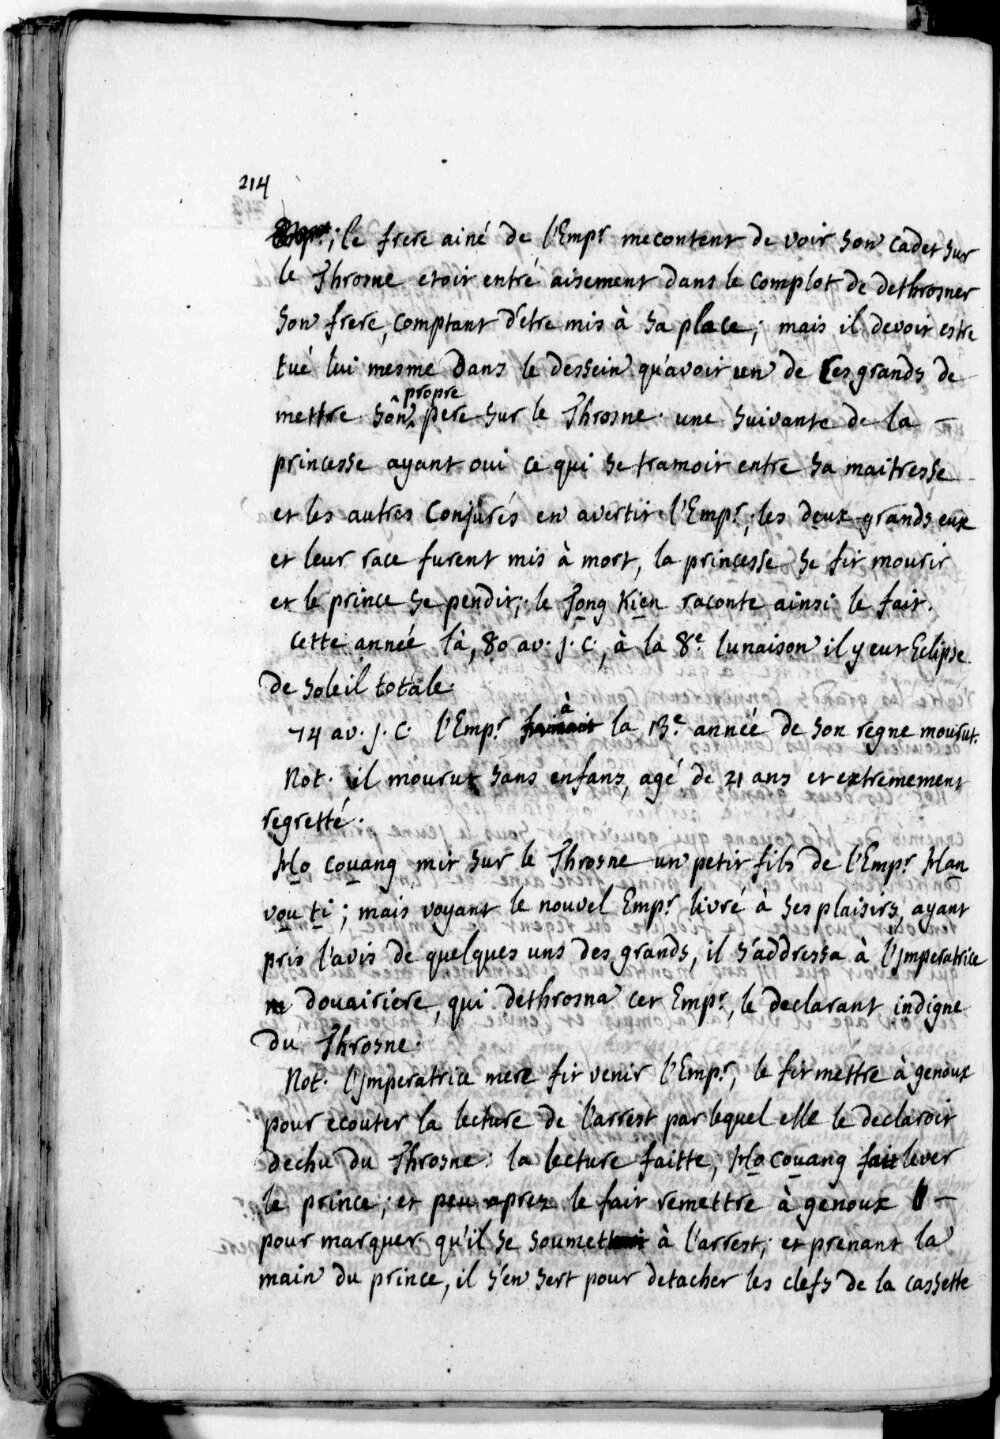 214
; le frere ainé de l'Empr mecontent de voir son cadet sur
le Throsne etoit entré aisement dans le complot de dethrosner
son frere, comptant d'etre mis à sa place; mais il devoit estre
tué lui mesme dans le dessein qu'avoit un de ces grands de
mettre son propre pere sur le Throsne. une suivante de la –
princesse ayant oui ce qui se tramoit entre sa maitresse
et les autres Conjurés en avertit l'Empr; les deux grands eux
et leur race furent mis à mort, la princesse se fit mourir
et le prince se pendit; le Tong Kien raconte ainsi le fait.
Cette année là, 80 av. J. C., à la 8e lunaison il y eut Eclipse
de soleil totale.
74 av. J. C. l'Empr à la 13e année de son regne mourut.
Not. il mourut sans enfans, agé de 21 ans et extremement
regretté.
Ho couang mit sur le Throsne un petit fils de l'Empr Han
vou ti; mais voyant le nouvel Empr livré à ses plaisirs, ayant
pris l'avis de quelques uns des grands, il s'addressa à l'Imperatrice
douairiere, qui dethrosna cet Empr, le declarant indigne
du Throsne.
Not. l'Imperatrice mere fit venir l'Empr, le fit mettre à genoux
pour ecouter la lecture de l'arrest par lequel elle le declaroit
dechu du Throsne: la lecture faitte, Ho couang fait lever
le prince; et peu aprez le fait remettre à genoux –
pour marquer qu'il se soumet à l'arrest; et prenant la
main du prince, il s'en sert pour detacher les clefs de la cassette